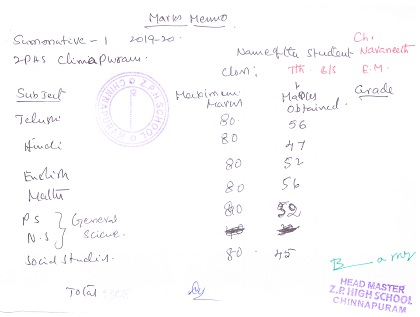 Marks Memo
Summative - 1 2019-20.
Name of the Student Ch. Navaneeth
ZPHS Chinnapuram.
Class: 7th E.M.
Subject Maximum Marks Marks Obtained. Grade
Telugu 80. 56
Hindi 80 47
English 80 52
Maths 80 56
PS } General 80 52
N.S } Sciene.
Social Studies. 80. 45
Total:
HEAD MASTER
Z.P. HIGH SCHOOL
CHINNAPURAM
Z.P.H SCHOOL
CHINNAPURAM